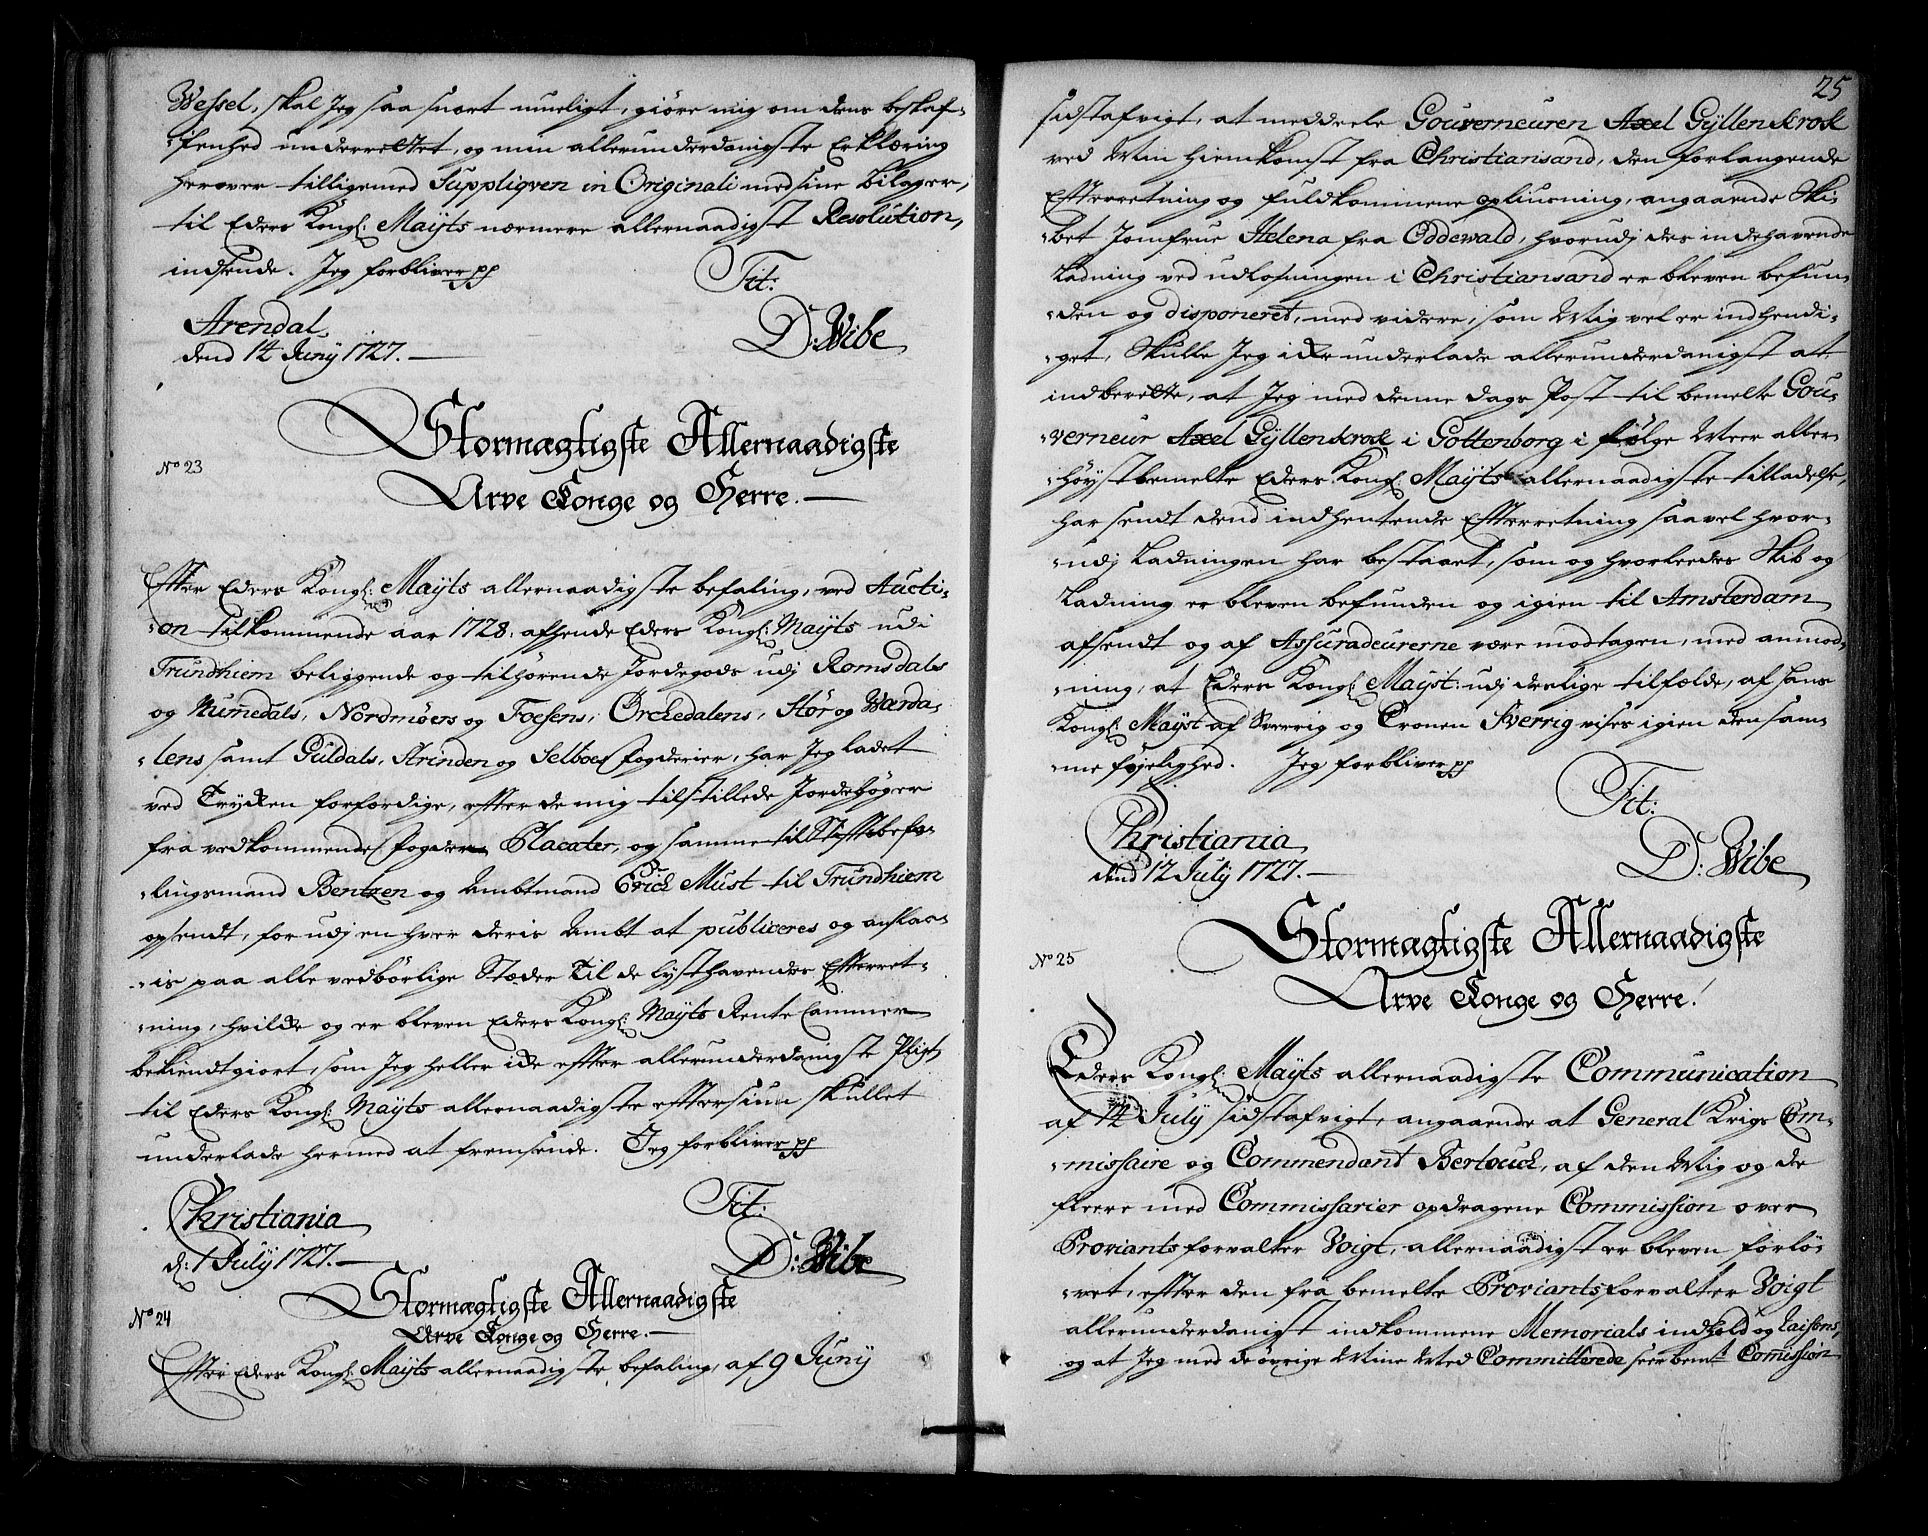 Wessel, skal Jeg saa snart mueligt, giøre mig om dens beskaf-
fenhed underrettet, og min allerunderdanigste Erklæring
herover tilligemed Suppliqven in Originali med sine bilager,
til Eders Kongl: Mayts nærmere allernaadigst Resolution,
indsende. Jeg forbliver pp
Tit:
Arendal
dend 14 Juny 1727.
D: Wibe
Stormægtigste Allernaadigste
No 23
Arve Konge og Herre.
Efter Eders Kongl: Mayts allernaadigste befaling, ved Aucti-
on tilkommende aar 1728. afhende Eders Kongl: Mayts udi
Trundhiem beliggende og tilhørende Jordegods udj Romsdals
og Numedals, Nordmøers og Foesens, Orckedalens, Stør og Wærda-
lens samt Guldals, Strinden og Selboes fogderier, har Jeg ladet
ved Trycken forfærdige, efter de mig tilstillede Jordebøger
fra vedkommende fogder Placater, og samme til Stiftsbefa-
lingsmand Bentzen og Ambtmand Erick Must til Trundhiem
opsendt, for udj en hver deris Ambt at publiceres og anslaa-
is paa alle vedbørlige Stæder til de lysthavendes Efterret-
ning, hvilcke og er bleven Eders Kongl: Mayts Rente Cammer
bekiendtgiort, som Jeg heller icke efter allerunderdanigste Pligt
til Eders Kongl: Mayts allernaadigste eftersiun skullet
underlade hermed at fremsende. Jeg forbliver pp
Tit:
Christiania
d: 1 July 1727.
D: Wibe
Stormægtigste Allernaadigste
No 24
Arve Konge og Herre.
Efter Eders Kongl: Mayts allernaadigste befaling, af 9 Juny
25
sidstafvigt, at meddeele Gouverneuren Axel Gyllenkrok
ved Min hiemkomst fra Christiansand, den forlangende
Efterretning og fuldkommene opliusning, angaaende Ski-
bet Jomfrue Helena fra Oddewald, hvorudj des indehavende
Ladning ved udlosningen i Christiansand er bleven befun-
den og disponeret, med videre, som Mig vel er indhendi-
get, Skulle Jeg icke underlade allerunderdanigst at
indberette, at Jeg med denne dags Post til bemelte Gou-
verneur Axel Gyllenkrok i Gottenborg i følge Meer aller-
høystbemelte Eders Kongl: Mayts allernaadigste tilladelse,
har sendt dend indhentende Efterretning saavel hvor-
udj Ladningen har bestaaet, som og hvorleedes Skib og
Ladning er bleven befunden og igien til Amsterdam
afsendt og af Assuradeurerne være modtagen, med anmod-
ning, at Eders Kongl: Mayst: udj deslige tilfælde, af hans
Kongl: Mayst af Sverrig og Cronen Sverrig vises igien den sam-
me føyelighed. Jeg forbliver pp
Tit:
Christiania
dend 12 July 1727.
D: Wibe
Stormægtigste Allernaadigste
No 25
Arve Konge og Herre.
Eders Kongl: Mayts allernaadigste Communication
af 14 July sidstafvigt, angaaende at General Krigs Com-
missaire og Commendant Bertouch, af den Mig og de
fleere med Commissarier opdragene Commission over
Proviantsforvalter Voigt, allernaadigst er bleven forlø-
vet, efter den fra bemelte Proviantsforvalter Voigt
allerunderdanigst indkommene Memorials indhold og Raisons,
og at Jeg med de øvrige Mine Med Committerede seer bemt Comission